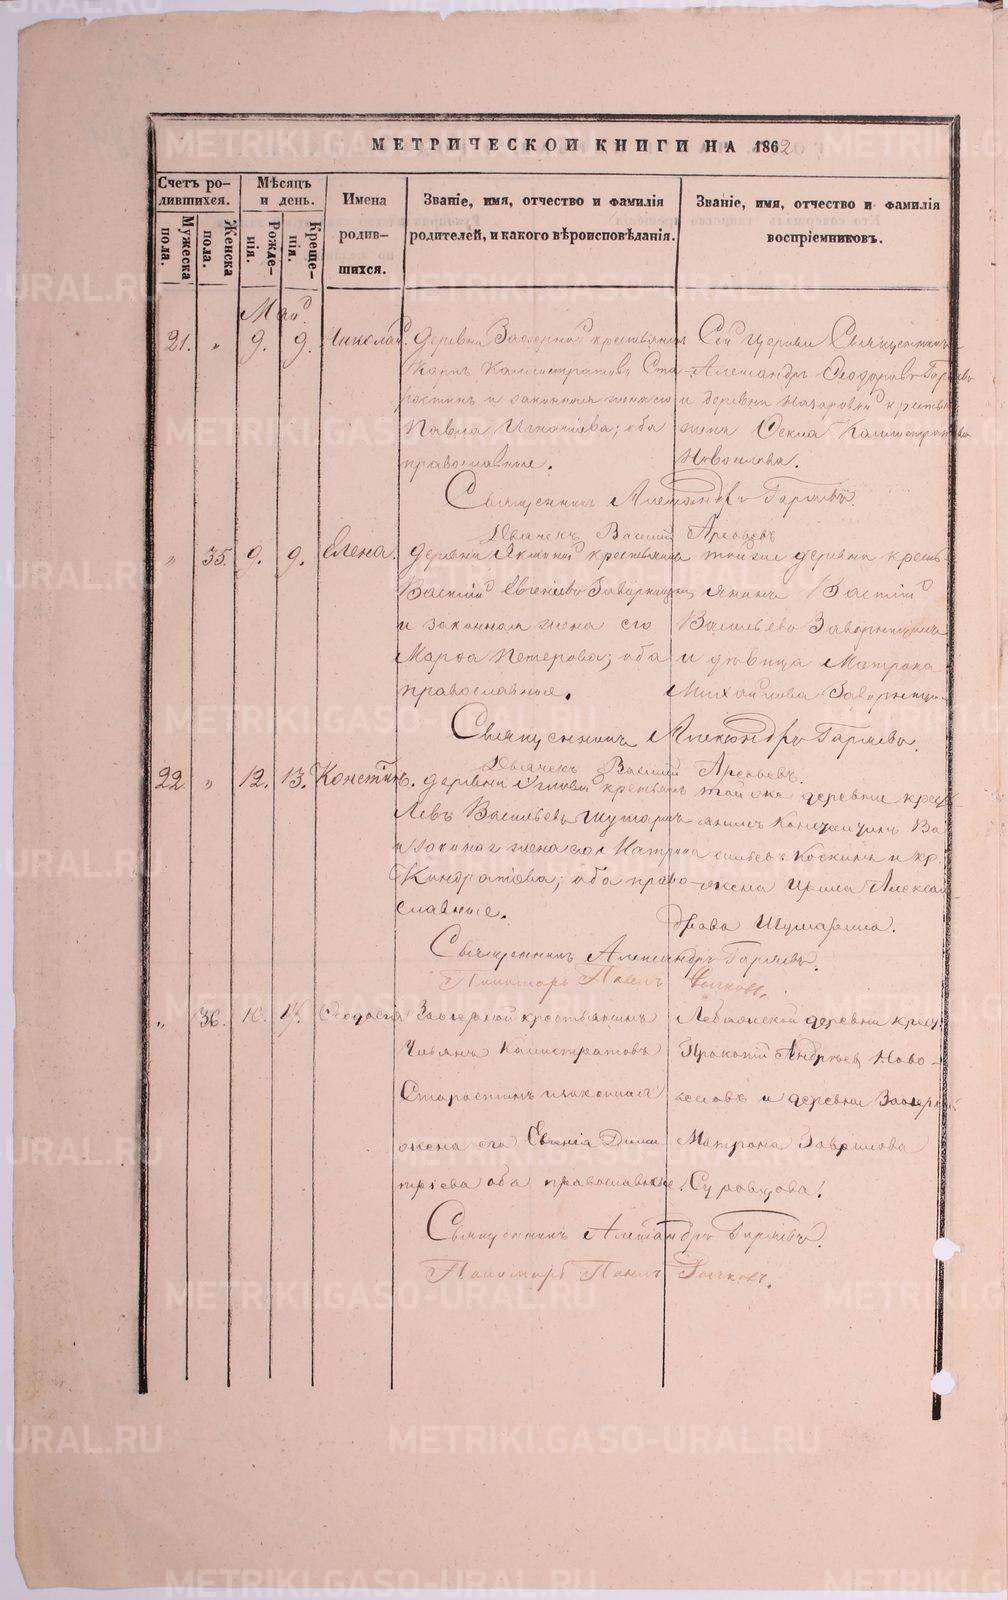 МЕТРИЧЕСКОЙ КНИГИ НА 1862
Счетъ ро-
дившихся.
Мужеска
пола.
Женска
пола.
Мѣсяцъ
и день.
Рожде-
нія.
Креще-
нія.
Имена
родив-
шихся.
Званіе, имя, отчество и фамилія
родителей, и какого вѣроисповѣданія.
Званіе, имя, отчество и фамилія
воспріемниковъ.
Май
21. „ 9. 9. Николай. деревни Заозерной крестьянинъ
Карпъ Каллистратовъ Ста-
ростинъ и законная жена его
Павла Игнатіева; оба
православные.
Сей Церкви Священникъ
Александръ Ѳеодоровъ Гаряевъ
и деревни Назаровой крестьян
жена Секла Каллистратова
Новоселова.
Священникъ Александръ Гаряевъ.
Дьячекъ Василій Арсеньевъ
„ 35. 9. 9. Елена. деревни крестьянинъ
Василій Евгеніевъ
и законная жена его
Марѳа Петрова; оба
православные.
той же деревни кресть
янинъ Василій
Васильевъ
и дѣвица Матрона
Михайлова
Священникъ Александръ Гаряевъ.
Дьячекъ Василій Арсеньевъ.
22. „ 12. 13. Констант. деревни крестьянинъ
Левъ Васильевъ Шумаринъ
и законная жена его Матрона
Кондратіева; оба право-
славные.
той же деревни крест
янинъ Константинъ Ва
сильевъ Коскинъ и кр.
жена Ирина Алексан
дрова Шумарина.
Священникъ Александръ Гаряевъ.
Пономарь Павелъ
„ 36. Ѳеодосія Заозерной крестьянинъ
Каллистратовъ
Старостинъ и законная
жена его Евгенія Дими
тріева оба православные.
деревни крест.
Прокопій Андреевъ Ново-
селовъ и деревни Заозерной
Матрона Гаврилова
Суровцова.
Священникъ Александръ Гаряевъ.
Пономарь Павелъ
METRIKI.GASO-URAL.RU